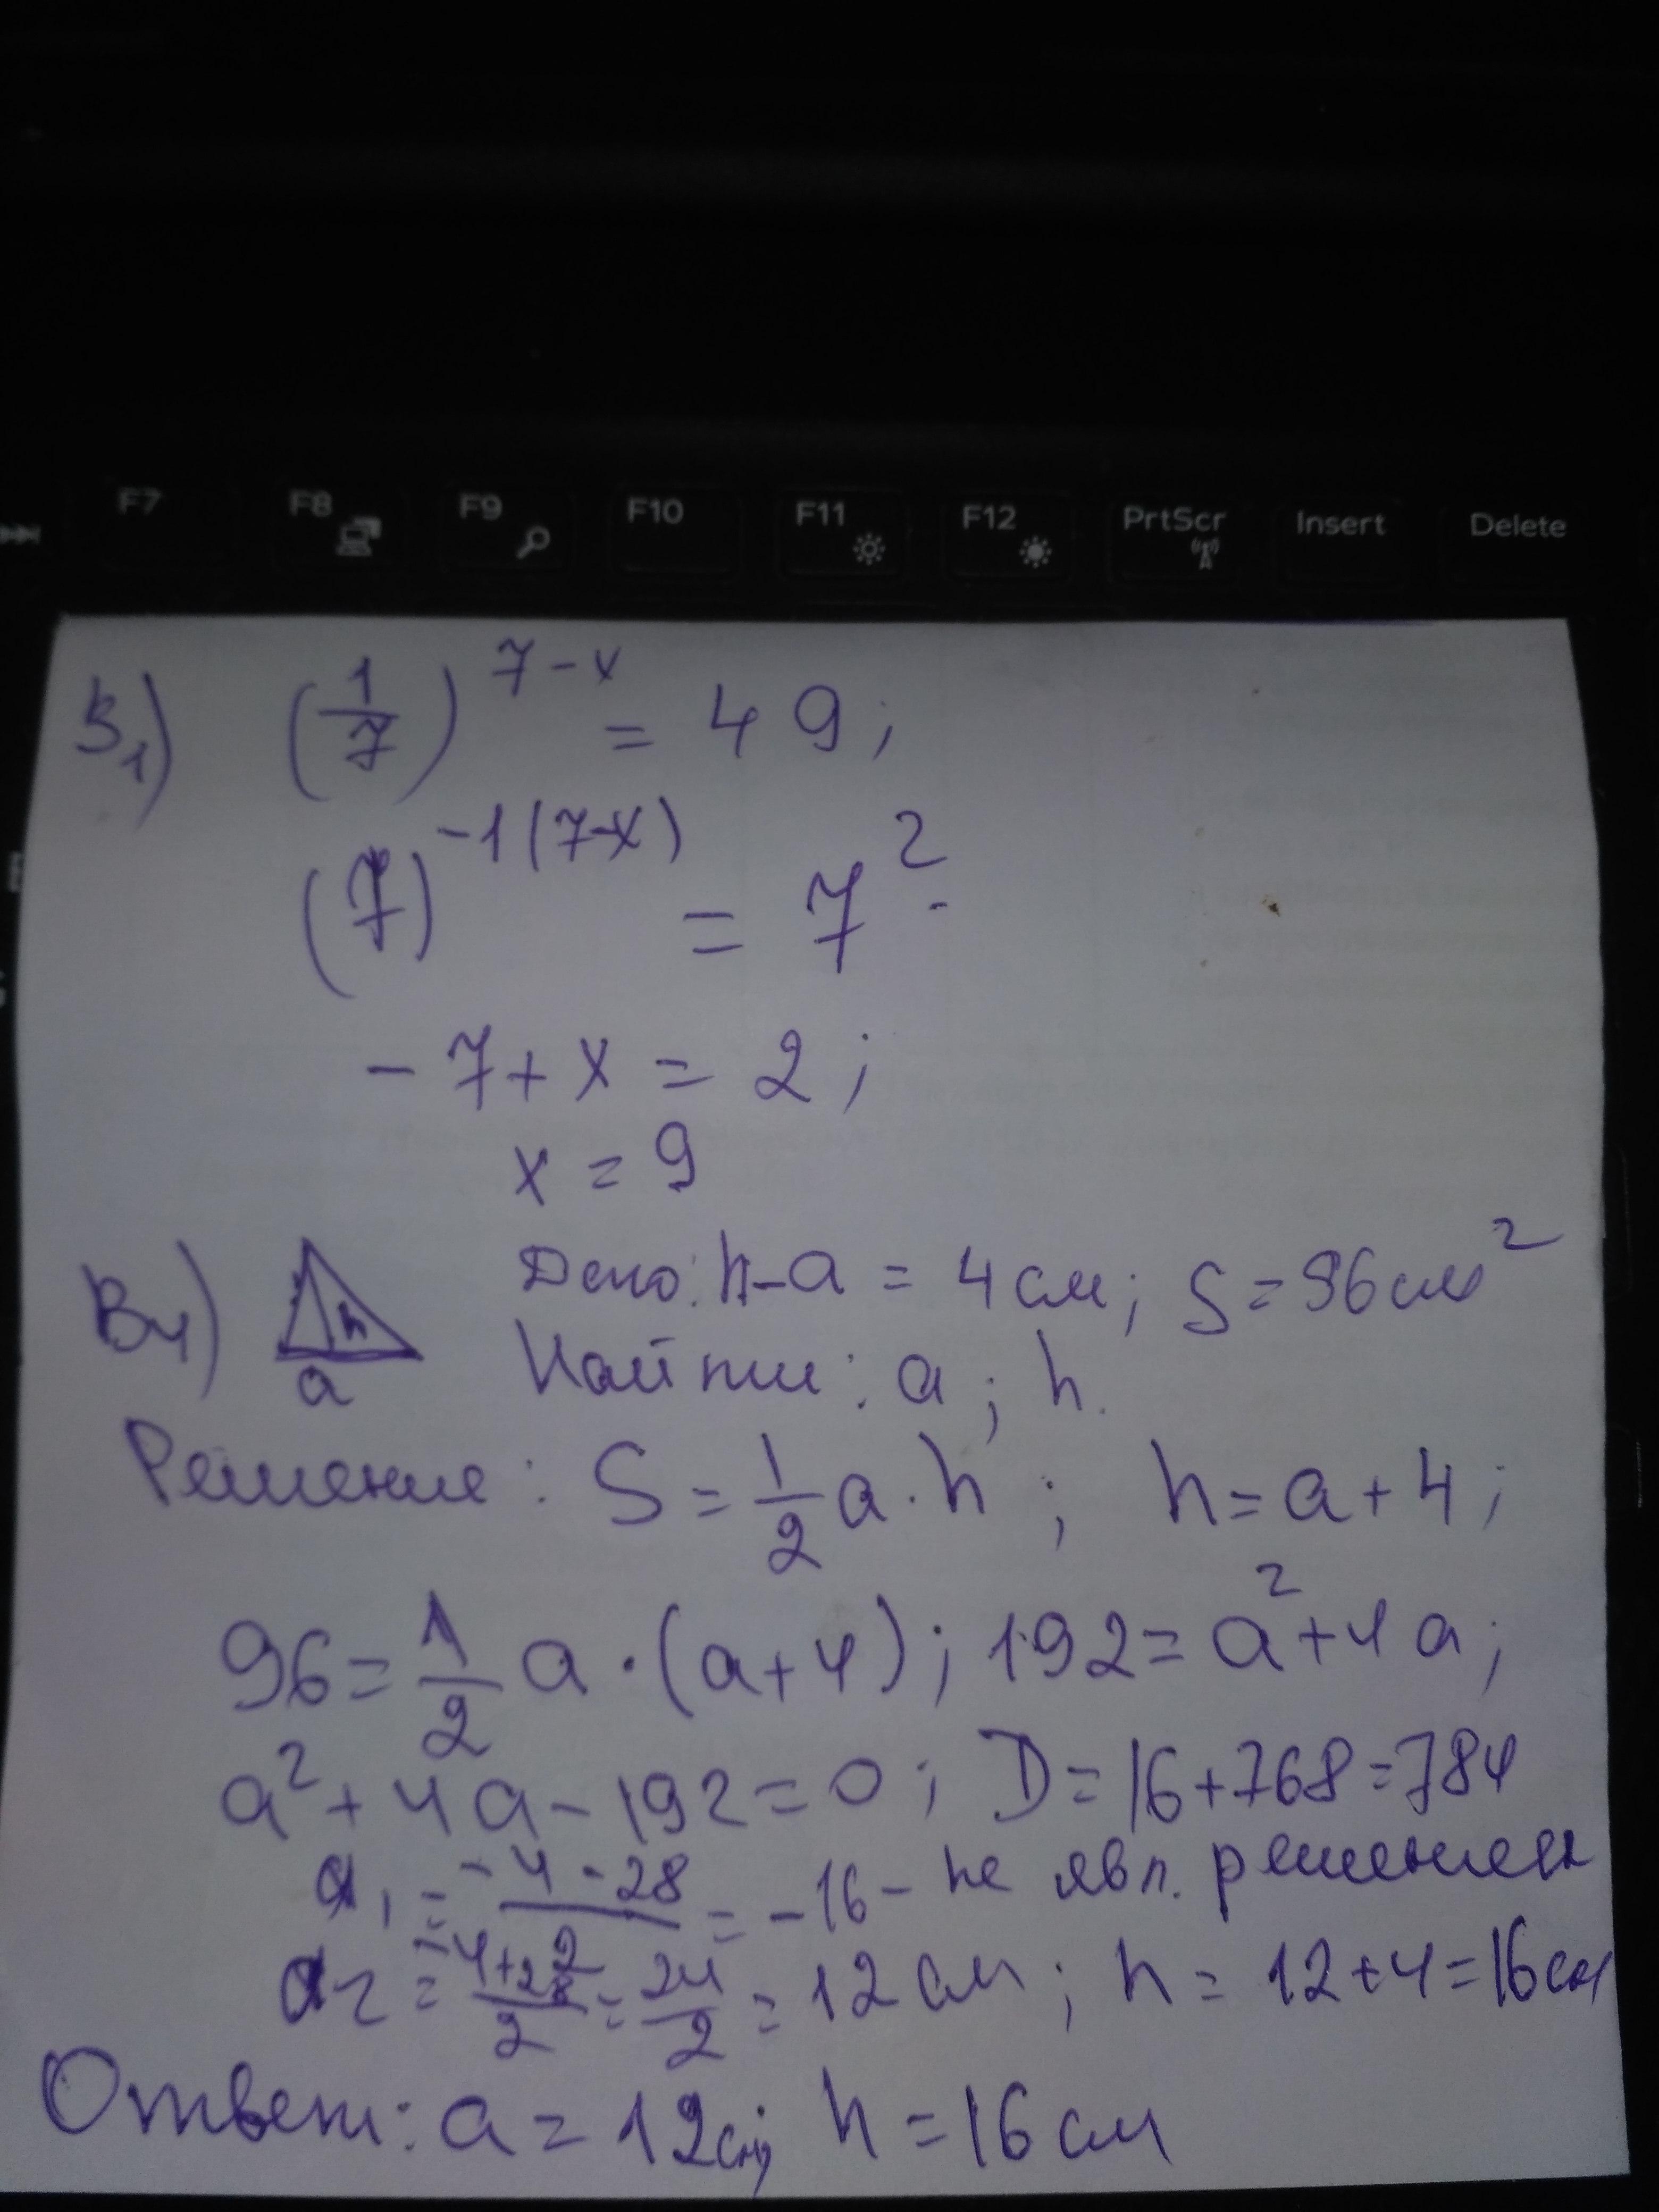 F7 F8 F9 F10 F11 F12 PrtScr Insert Delete
B₁) (1/7)^(7-x) = 49;
(7)^(-1(7-x)) = 7².
-7+x = 2;
x = 9
B₄) h a Дано: h-a = 4 см; S = 96 см²
Найти: a; h.
Решение: S = 1/2 a · h; h = a+4;
96 = 1/2 a · (a+4); 192 = a²+4a;
a²+4a-192=0; D=16+768=784
a₁ = (-4-28)/2 = -16 - не явл. решением
a₂ = (-4+28)/2 = 24/2 = 12 см; h = 12+4=16см
Ответ: a = 12см; h = 16 см